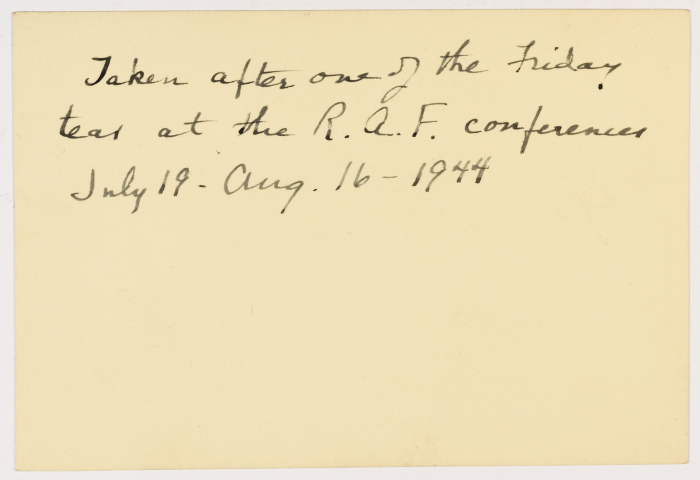 Taken after one of the Friday
teas at the R.A.F. conferences
July 19 - Aug. 16 - 1944